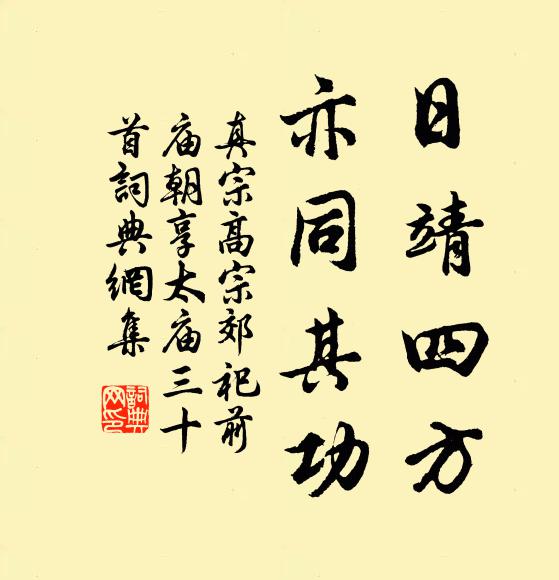 日靖四方
亦同其功
真宗高宗郊祀前
庙朝享太庙三十
首词典網集
詞典
网印